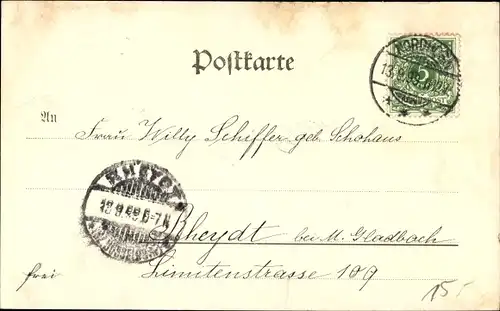 Postkarte
An
Frau Willy Schiffer geb. Schohaus
RHEYDT
Rheydt bei M. Gladbach
frei
Limitenstrasse 109
15.-